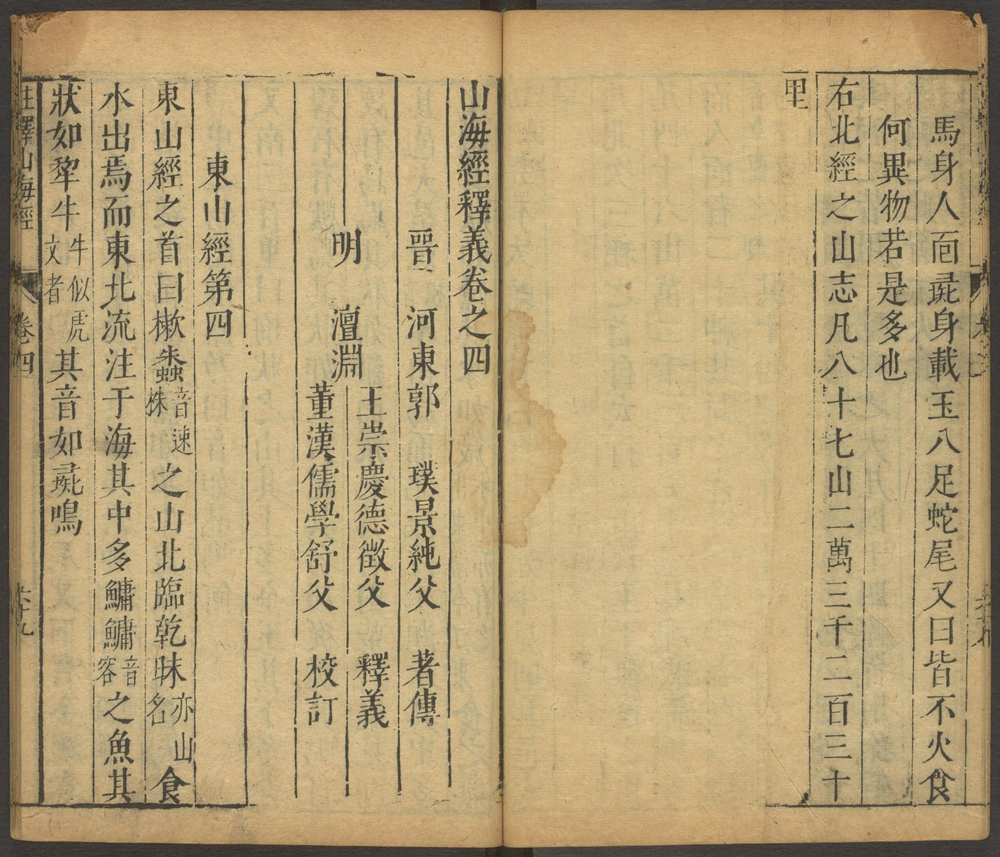 馬身人面彘身載玉八足蛇尾又曰皆不火食
何異物若是多也
右北經之山志凡八十七山二萬三千二百三十
里
山海經釋義卷之四
晉 河東郭 璞景純父 著傳
明 澶淵 王崇慶德徵父 釋義
董漢儒學舒父 校訂
東山經第四
東山經之首曰樕䗤音速株之山北臨乾昧亦山名食
水出焉而東北流注于海其中多鱅鱅音容之魚其
狀如犂牛牛似虎文者其音如彘鳴
註釋山海經 卷四 六十九